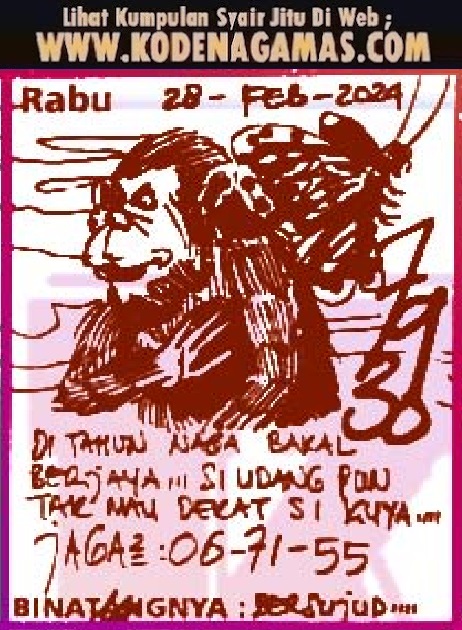 Lihat Kumpulan Syair Jitu Di Web ;
WWW.KODENAGAMAS.COM
Rabu 28 - FEB - 2024
79
30
DI TAHUN NAGA BAKAL
BERJAYA ,,, SI UDANG PUN
TAK MAU DEKAT SI KUYA ....
JAGA2 : 06-71-55
BINATANGNYA : BERSUJUD ....